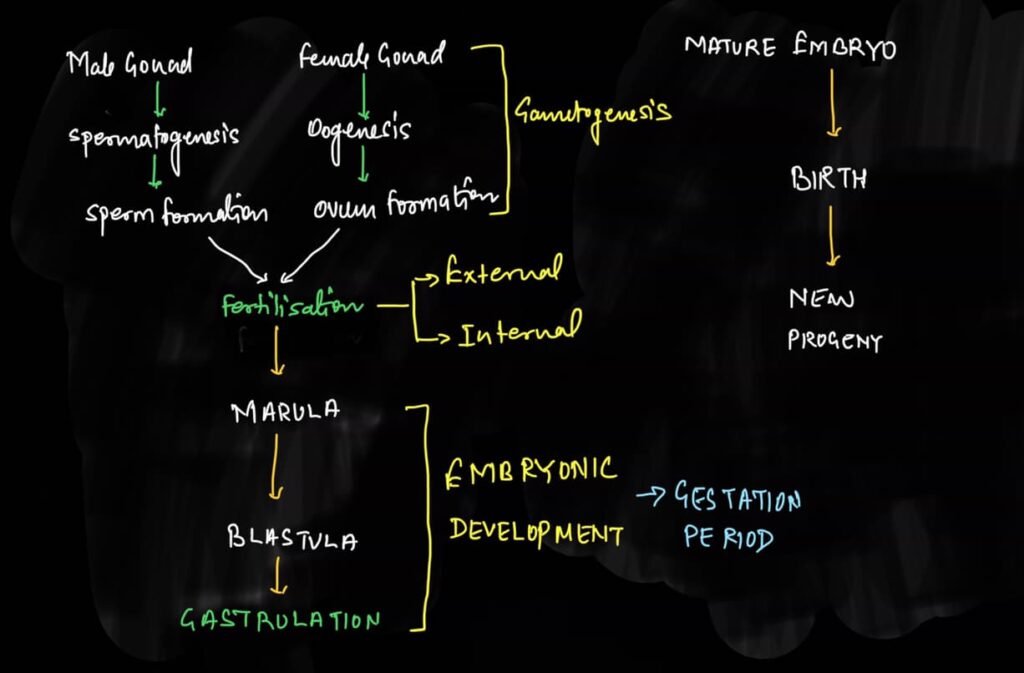 Male Gonad
Female Gonad
Gametogenesis
Spermatogenesis
Oogenesis
Sperm formation
Ovum formation
fertilisation
External
Internal
MARULA
BLASTULA
GASTRULATION
EMBRYONIC
DEVELOPMENT
GESTATION
PERIOD
MATURE EMBRYO
BIRTH
NEW
PROGENY